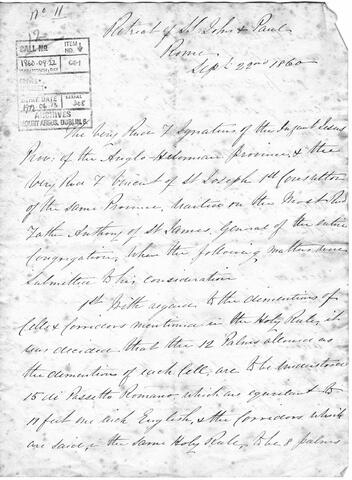 No 11
Retreat of St John & Paul
Rome
Sept 22nd 1860
CALL NO.
ITEM NO.
1860-09-22
ARCHIVES
MOUNT ARGUS, DUBLIN 6
The Very Revd F Ignatius of the Infant Jesus
Prov: of the Anglo-Hibernian province, & the
Very Revd F Vincent of St Joseph 1st Consultor
of the same Province, waited on the Most Revd
Father Anthony of St James, General of the entire
Congregation, when the following matters were
submitted to his consideration
1st With regard to the dimentions of
Cells & Corridors mentioned in the Holy Rule, it
was decided that the 12 Palms allowed as
the dimentions of each Cell, are to be understood
15 di Passetto Romano, which are equivalent to
11 feet one inch English, & the Corridors which
are said, in the same Holy Rule, to be 8 palms